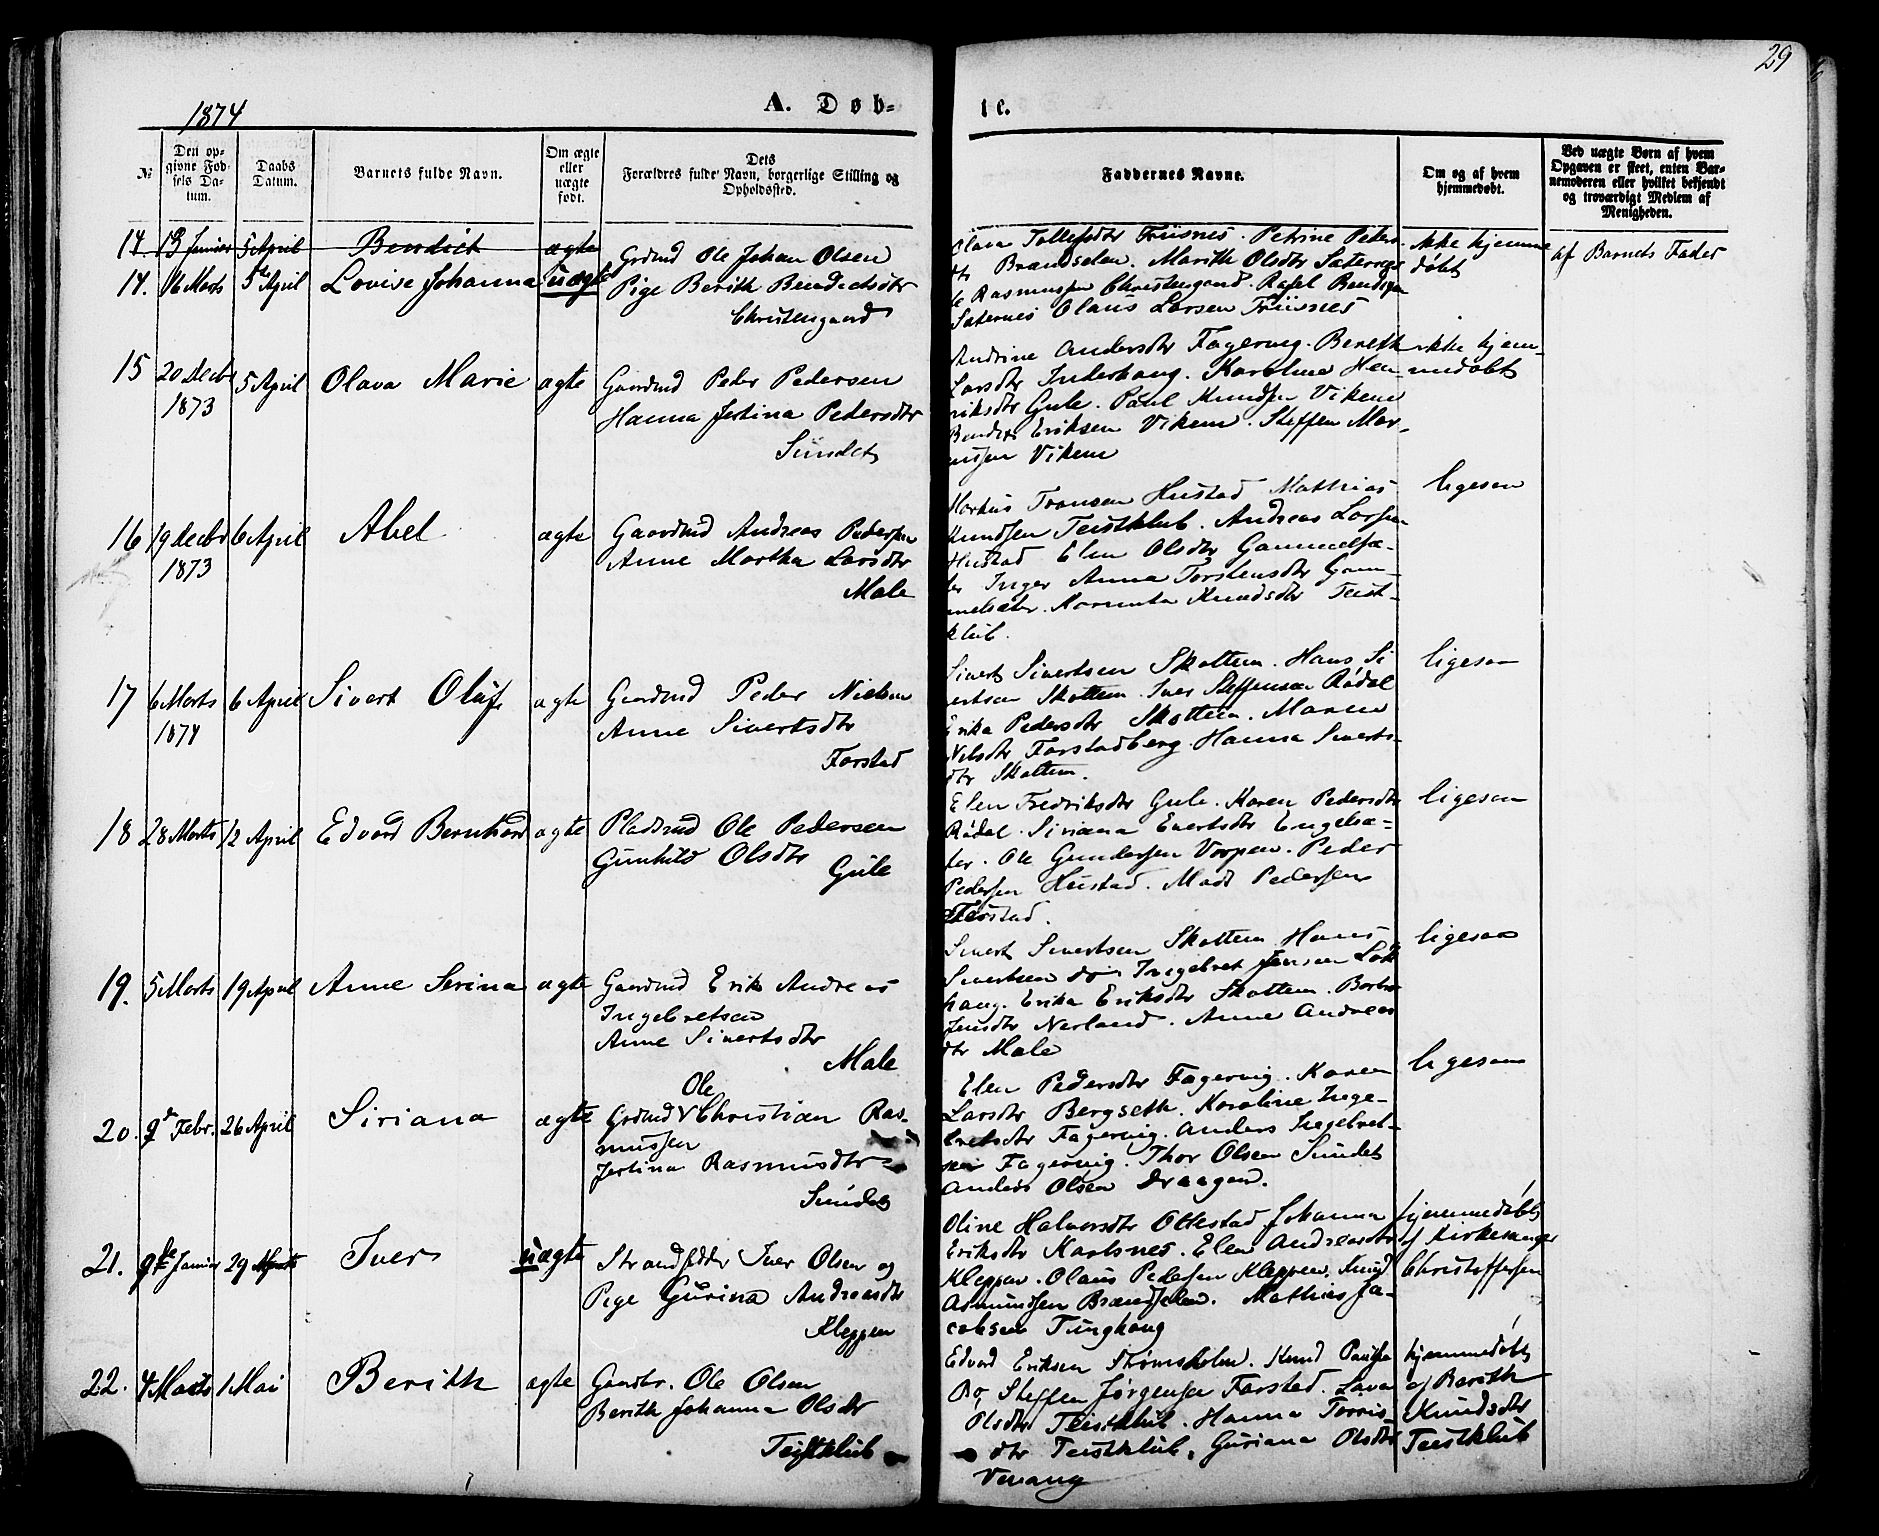 29
1874
A. Døb-
te.
№
Den op-
givne Fød-
sels Da-
tum.
Daabs
Datum.
Barnets fulde Navn.
Om ægte
eller
uægte
født.
Dets
Forældres fulde Navn, borgerlige Stilling og
Opholdssted.
Faddernes Navne.
Om og af hvem
hjemmedøbt.
Ved uægte Børn af hvem
Opgaven er skeet, enten Bar-
nemoderen eller hvilket bekjendt
og troværdigt Medlem af
Menigheden.
14 13 Januar 5 April Bendict ægte
14. 16 Marts 5te April Lovise Johanna uægte
Grdmd Ole Johan Olsen
Pige Berith Bendictsdtr
Christengaard
Olava Tollefsdtr Friisnes. Petrine Peders
dtr Brandselen. Marith Olsdtr Saternes
Rasmussen Christengaard. Rafel Bendigsen
Saternes Olaus Larsen Friisnes
ikke hjemme
døbt
af Barnets Fader
15 20 Decbr 5 April Olava Marie ægte
1873
Gaardmd Peder Pedersen
Hanna Jertina Pedersdtr
Sundet
Andrine Andersdtr Fagervig. Bereth
Larsdtr Inderhaug. Karoline Hen
riksdtr Gule. Paul Knudsen Viken
Bendix Eriksen Viken. Steffen Mor
ensen Viken
ikke hjem-
medøbt
16 19 Decbr 6 April Abel ægte
1873
Gaardmd Andreas Pedersen
Anne Martha Larsdtr
Male
Markus Fransen Hustad Mathias
Knudsen Teistklub. Andreas Larsen
Hustad Elen Olsdtr Gammelsæ-
ter Inger Anna Torstensdtr Gam-
melsæter. Knudsdtr Teist-
klub.
ligesaa
17 6 Marts 6 April Sivert Oluf ægte
1874
Gaardmd Peder Nielsen
Anne Sivertsdtr
Farstad
Sivert Sivertsen Skottem. Hans Si
vertsen Skottem. Iver Steffensen Rødal
Erika Pedersdtr Skottem. Maren
Nilsdtr Farstadberg. Hanna Siverts-
dtr Skottem.
ligesaa
18 28 Marts 12 April Edvard Bernhard ægte
Pladsmd Ole Pedersen
Gunhild Olsdtr
Gule
Elen Fredriksdtr Gule. Karen Pedersdtr
Rødal. Siriana Evertsdtr Engelsæ-
ter. Ole Gundersen Vorpen. Peder
Pedersen Hustad. Mads Pedersen
Farstad.
ligesaa
19. 5 Marts 19 April Anne Serina ægte
Gaardmd Erik Andreas
Ingebretsen
Anne Sivertsdtr
Male
Sivert Sivertsen Skottem Hans
Sivertsen do Ingebret Jensen Løk
haug. Erika Eriksdtr Skottem. Barbro
Jensdtr Nerland. Anne Andreas
dtr Male
ligesaa
20. 9de Febr. 26 April Siriana ægte
Ole
Grdmd Christian Ras-
mussen
Jertina Rasmusdtr
Sundet
Elen Pedersdtr Fagervig. Karen
Larsdtr Bergseth. Karoline Inge-
bretsdtr Fagervig. Anders Ingebret-
sen Fagervig. Thor Olsen Sundet
Anders Olsen Draagen.
ligesaa
21. 9de Januar 29 Iver uægte
Strandsidder Iver Olsen og
Pige Gurina Andreasdtr
Kleppen
Oline Halvorsdtr Ottestad Johanna
Eriksdtr Karlsnes. Elen Andreasdtr
Kleppen. Olaus Pedersen Kleppen. Knud
Asmundsen Brandselen. Mathias Ja-
cobsen Tunghaug
hjemmedøbt
af Kirkesanger
Christoffersen
22. 4 Marts 1 Mai Berith ægte
Gaardbr. Ole Olsen
Berith Johanna Olsdtr
Teistklub
Edvard Eriksen Strømsholm. Knud Paulsen
Bø. Steffen Jørgensen Farstad. Lava
Olsdtr Teistklub. Hanna Torris-
dtr Teistklub. Guriana Olsdtr
Vevang
hjemmedøbt
af Berith
Knudsdtr
Teistklub